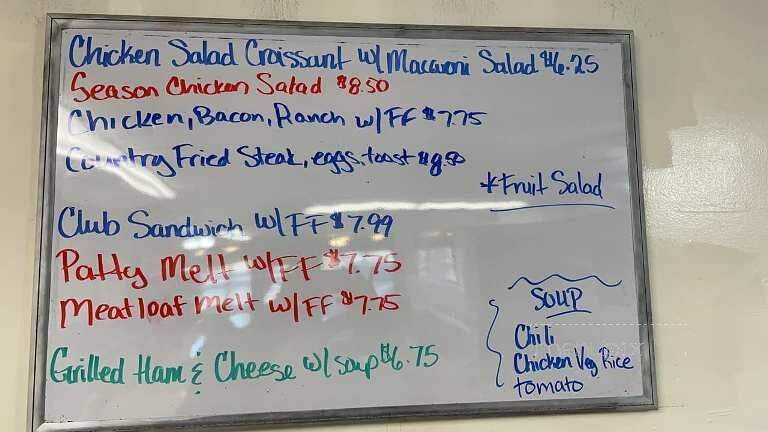 Chicken Salad Croissant w/ Macaroni Salad $6.25
Season Chicken Salad $8.50
Chicken, Bacon, Ranch w/FF $7.75
Country Fried Steak, eggs, toast
*Fruit Salad
Club Sandwich w/FF $7.99
Patty Melt w/FF $7.75
Meatloaf melt w/FF $7.75
Grilled Ham & Cheese w/soup $6.75
SOUP
Chili
Chicken Veg Rice
tomato